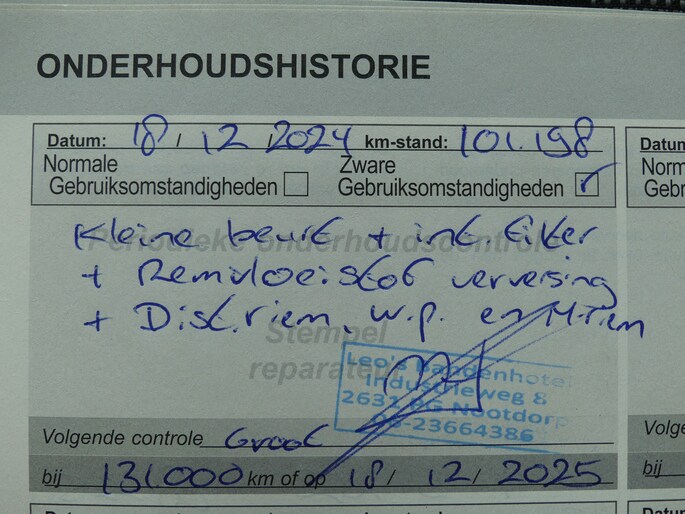 ONDERHOUDSHISTORIE
Datum: 18 / 12 / 2024 km-stand: 101.198
Normale Gebruiksomstandigheden
Zware Gebruiksomstandigheden
Periodieke onderhoudscontrole
Kleine beurt + int. filter
+ Remvloeistof verversing
+ Dist.riem, w.p. en M-riem
Stempel
reparateur
Leo's Bandenhotel
Industrieweg 8
2631 PG Nootdorp
06-23664386
Volgende controle Groot
bij 131.000 km of op 18 / 12 / 2025
Datum
Norm
Gebr
Volge
bij